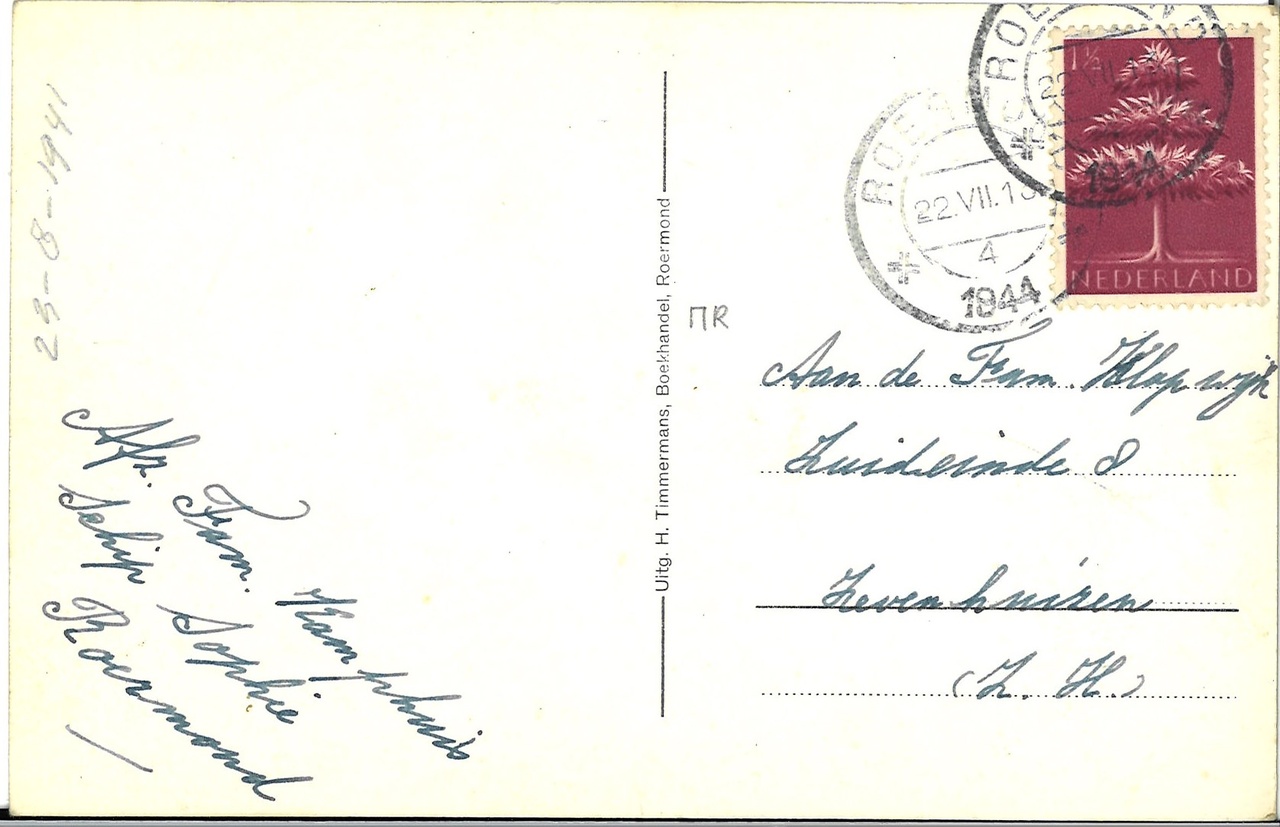 23-8-1941
Afz. Fam. Kamphuis
Schip Sophie
Roermond
Uitg. H. Timmermans, Boekhandel, Roermond
ROE
22.VII.13
4
1944
ROE
22.VII.13
1944
1½ C
NEDERLAND
ПR
Aan de Fam. Klapwijk
Zuideinde 8
Zevenhuizen
(Z. H.)